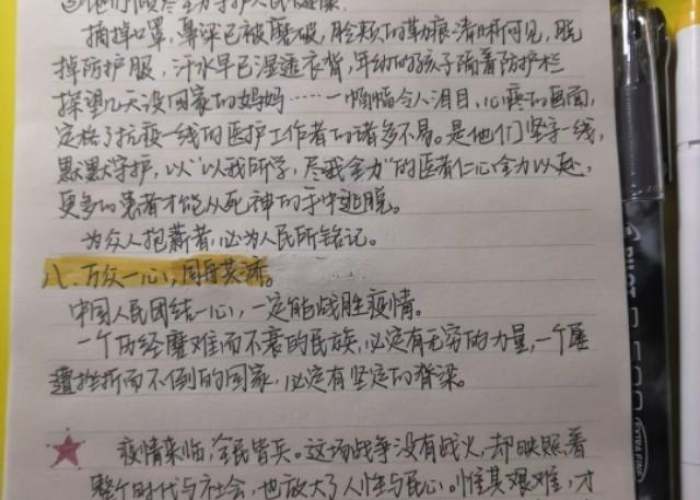 摘掉口罩，鼻梁已被磨破，脸颊的勒痕清晰可见，脱
掉防护服，汗水早已湿透衣背，年幼的孩子隔着防护栏
探望几天没回家的妈妈……一幅幅令人泪目、心疼的画面，
定格了抗疫一线的医护工作者的诸多不易。是他们坚守一线，
默默守护，以“以我所学，尽我全力”的医者仁心全力以赴，
更多的患者才能从死神的手中逃脱。
为众人抱薪者，必为人民所铭记。
八、万众一心，同舟共济。
中国人民团结一心，一定能战胜疫情。
一个历经磨难而不衰的民族，必定有无穷的力量，一个屡
遭挫折而不倒的国家，必定有坚定的脊梁。
疫情来临，全民皆兵。这场战争没有战火，却映照着
整个时代与社会，也放大了人性与民心。惟其艰难，才
PILOT
EXTRA FINE